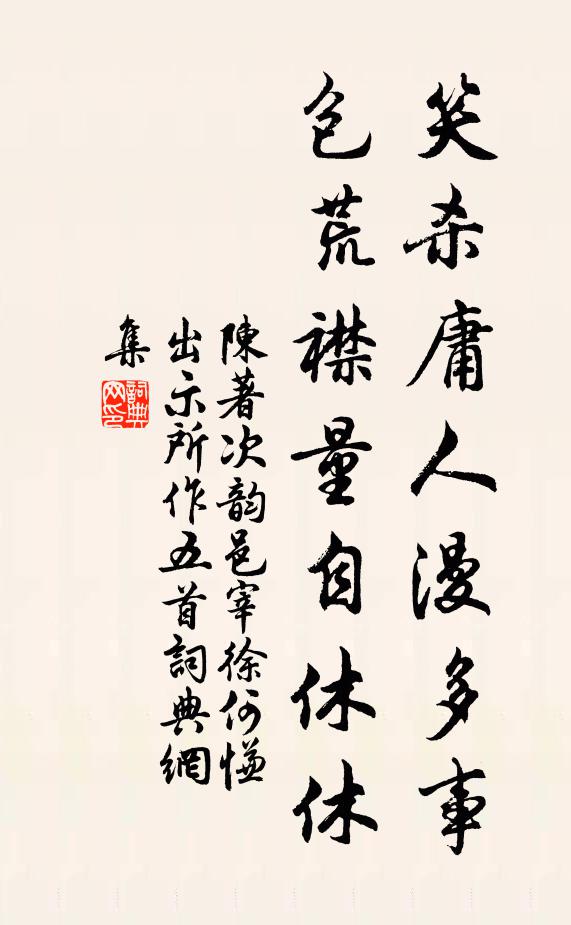 笑杀庸人漫多事
包荒襟量自休休
陳著次韵邑宰徐何慊
出示所作五首詞典網
集
詞典
网印